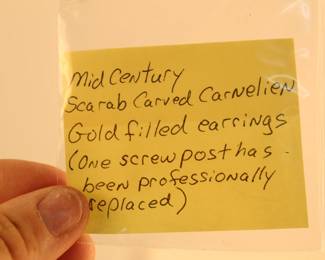 Mid Century
Scarab Carved Carnelien
Gold filled earrings
(One screw post has
been professionally
replaced)